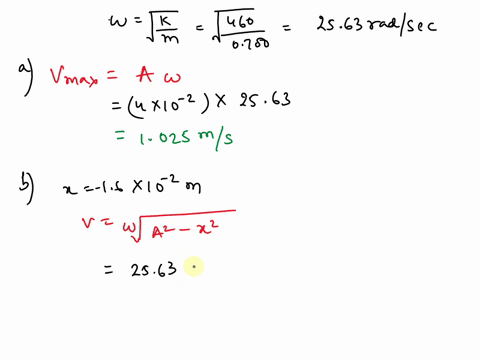 ω = √K/m = √460/0.700 = 25.63 rad/sec
a) Vmax = A ω
= (4 × 10⁻²) × 25.63
= 1.025 m/s
b) x = -1.5 × 10⁻² m
V = ω√A² - x²
= 25.63